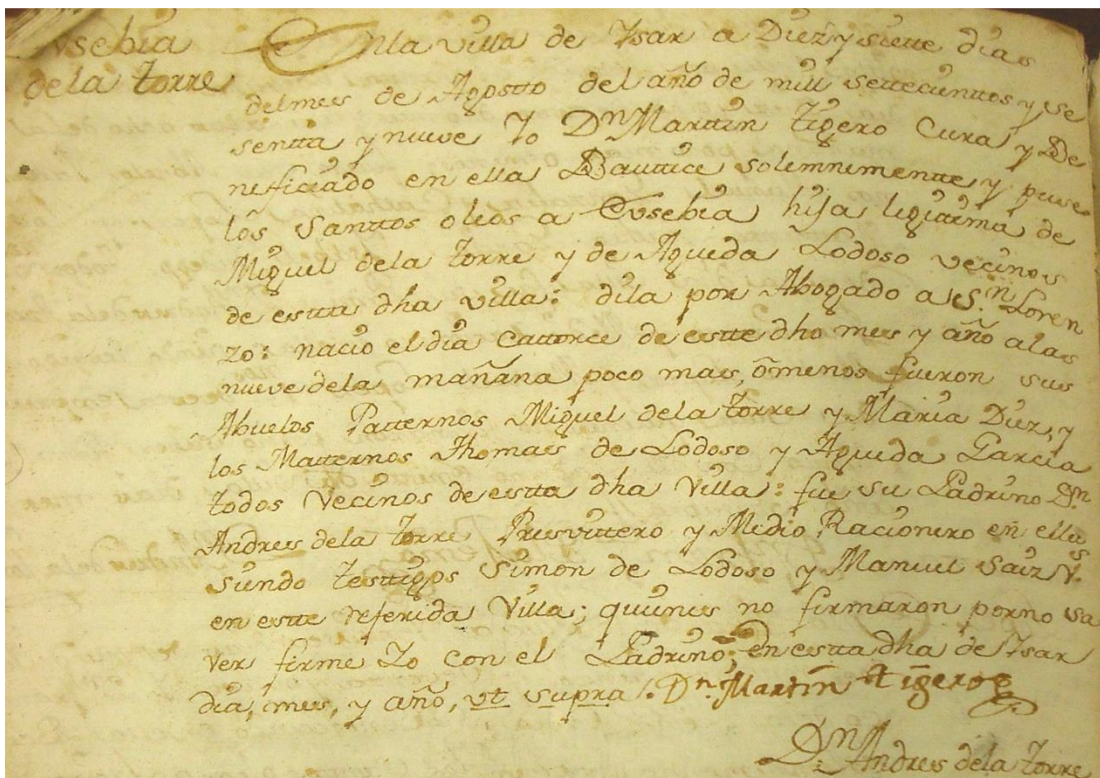 Eusebia
de la Torre
En la villa de Ysar a Diez y siette dias
del mes de Agostto del año de mill settecienttos y se
sentta y nueve Yo Dn Marttin Tigero Cura y Be
neficiado en ella Bautice solemnementte y puse
los Santtos oleos a Eusebia hija legitima de
Miguel dela Torre y de Agueda Lodoso vecinos
de estta dha villa: dila por Abogado a Sn Loren
zo: nacio el dia Cattorce de estte dho mes y año a las
nueve dela mañana poco mas, ō menos fueron sus
Abuelos Patternos Miguel dela Torre y Maria Diez, y
los Matternos Thomas de Lodoso y Agueda Garcia
todos Vecinos de estta dha Villa: fue su Padrino Dn
Andres dela Torre Presvittero y Medio Racionero en ella
siendo testtigos Simon de Lodoso y Manuel Saiz Vs.
en estte referida Villa; quienes no firmaron por no sa
ver firme Yo con el Padrino; en estta dha de Ysar
dia, mes, y año, ut supra /. Dn Martin Tigero
Dn Andres dela Torre